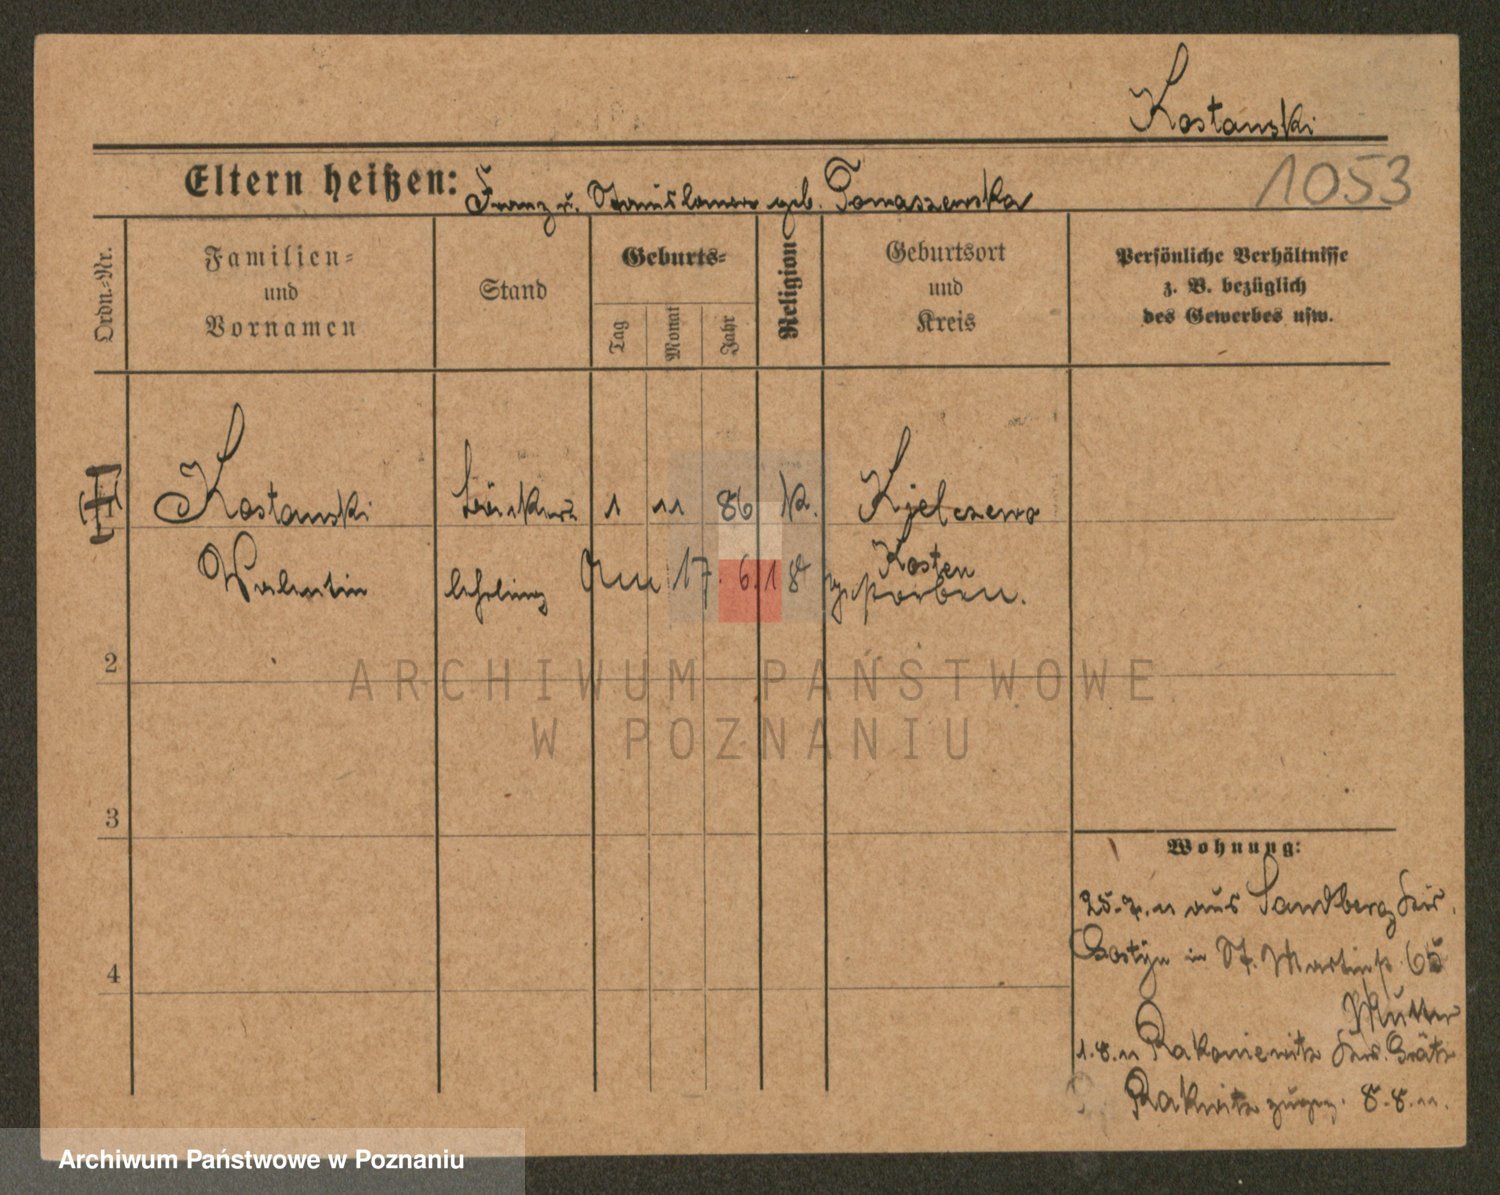 Kostanski
Eltern heißen: Franz u. Stanislawa geb. Tomaszewska
1053
Ordn.-Nr.
Familien-
und
Vornamen
Stand
Geburts-
Tag
Monat
Jahr
Religion
Geburtsort
und
Kreis
Persönliche Verhältnisse
z. B. bezüglich
des Gewerbes usw.
Kostanski 1 11 86 k. Kjelczewo
Valentin lehrling Kosten
Am 17. 6. 18 gestorben.
2
3
4
Wohnung:
25.7.11 aus Sandberg Krs.
Gostyn in St. Martinstr. 65
Mutter
1.8.11 Rakoniewitz Krs. Grätz
Rakwitz zugez. 8.8.11.
ARCHIWUM PAŃSTWOWE
W POZNANIU
Archiwum Państwowe w Poznaniu